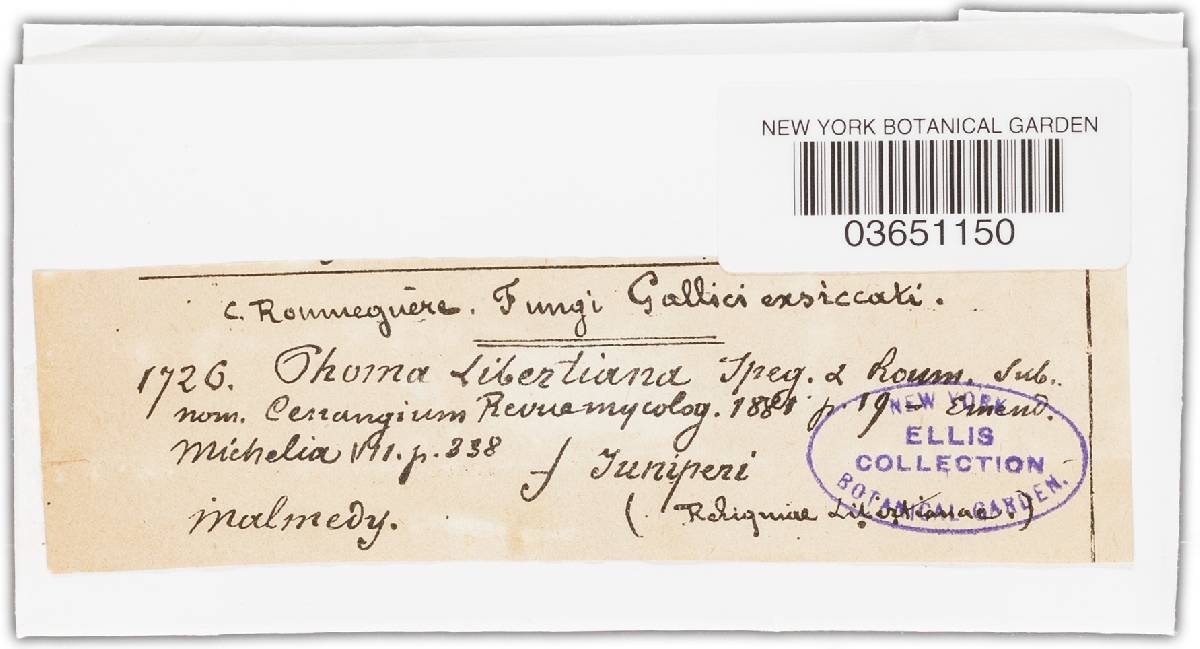 NEW YORK BOTANICAL GARDEN
03651150
C. Roumeguère. Fungi Gallici exsiccati.
1726. Phoma Libertiana Speg. & Roum. Sub.
nom. Cenangium Revue mycolog. 1881 p. 19 - Emend.
Michelia VII. p. 338 f. Juniperi
Malmedy. (Reliquiae Libertianae.)
NEW YORK
ELLIS
COLLECTION
BOTANICAL GARDEN.